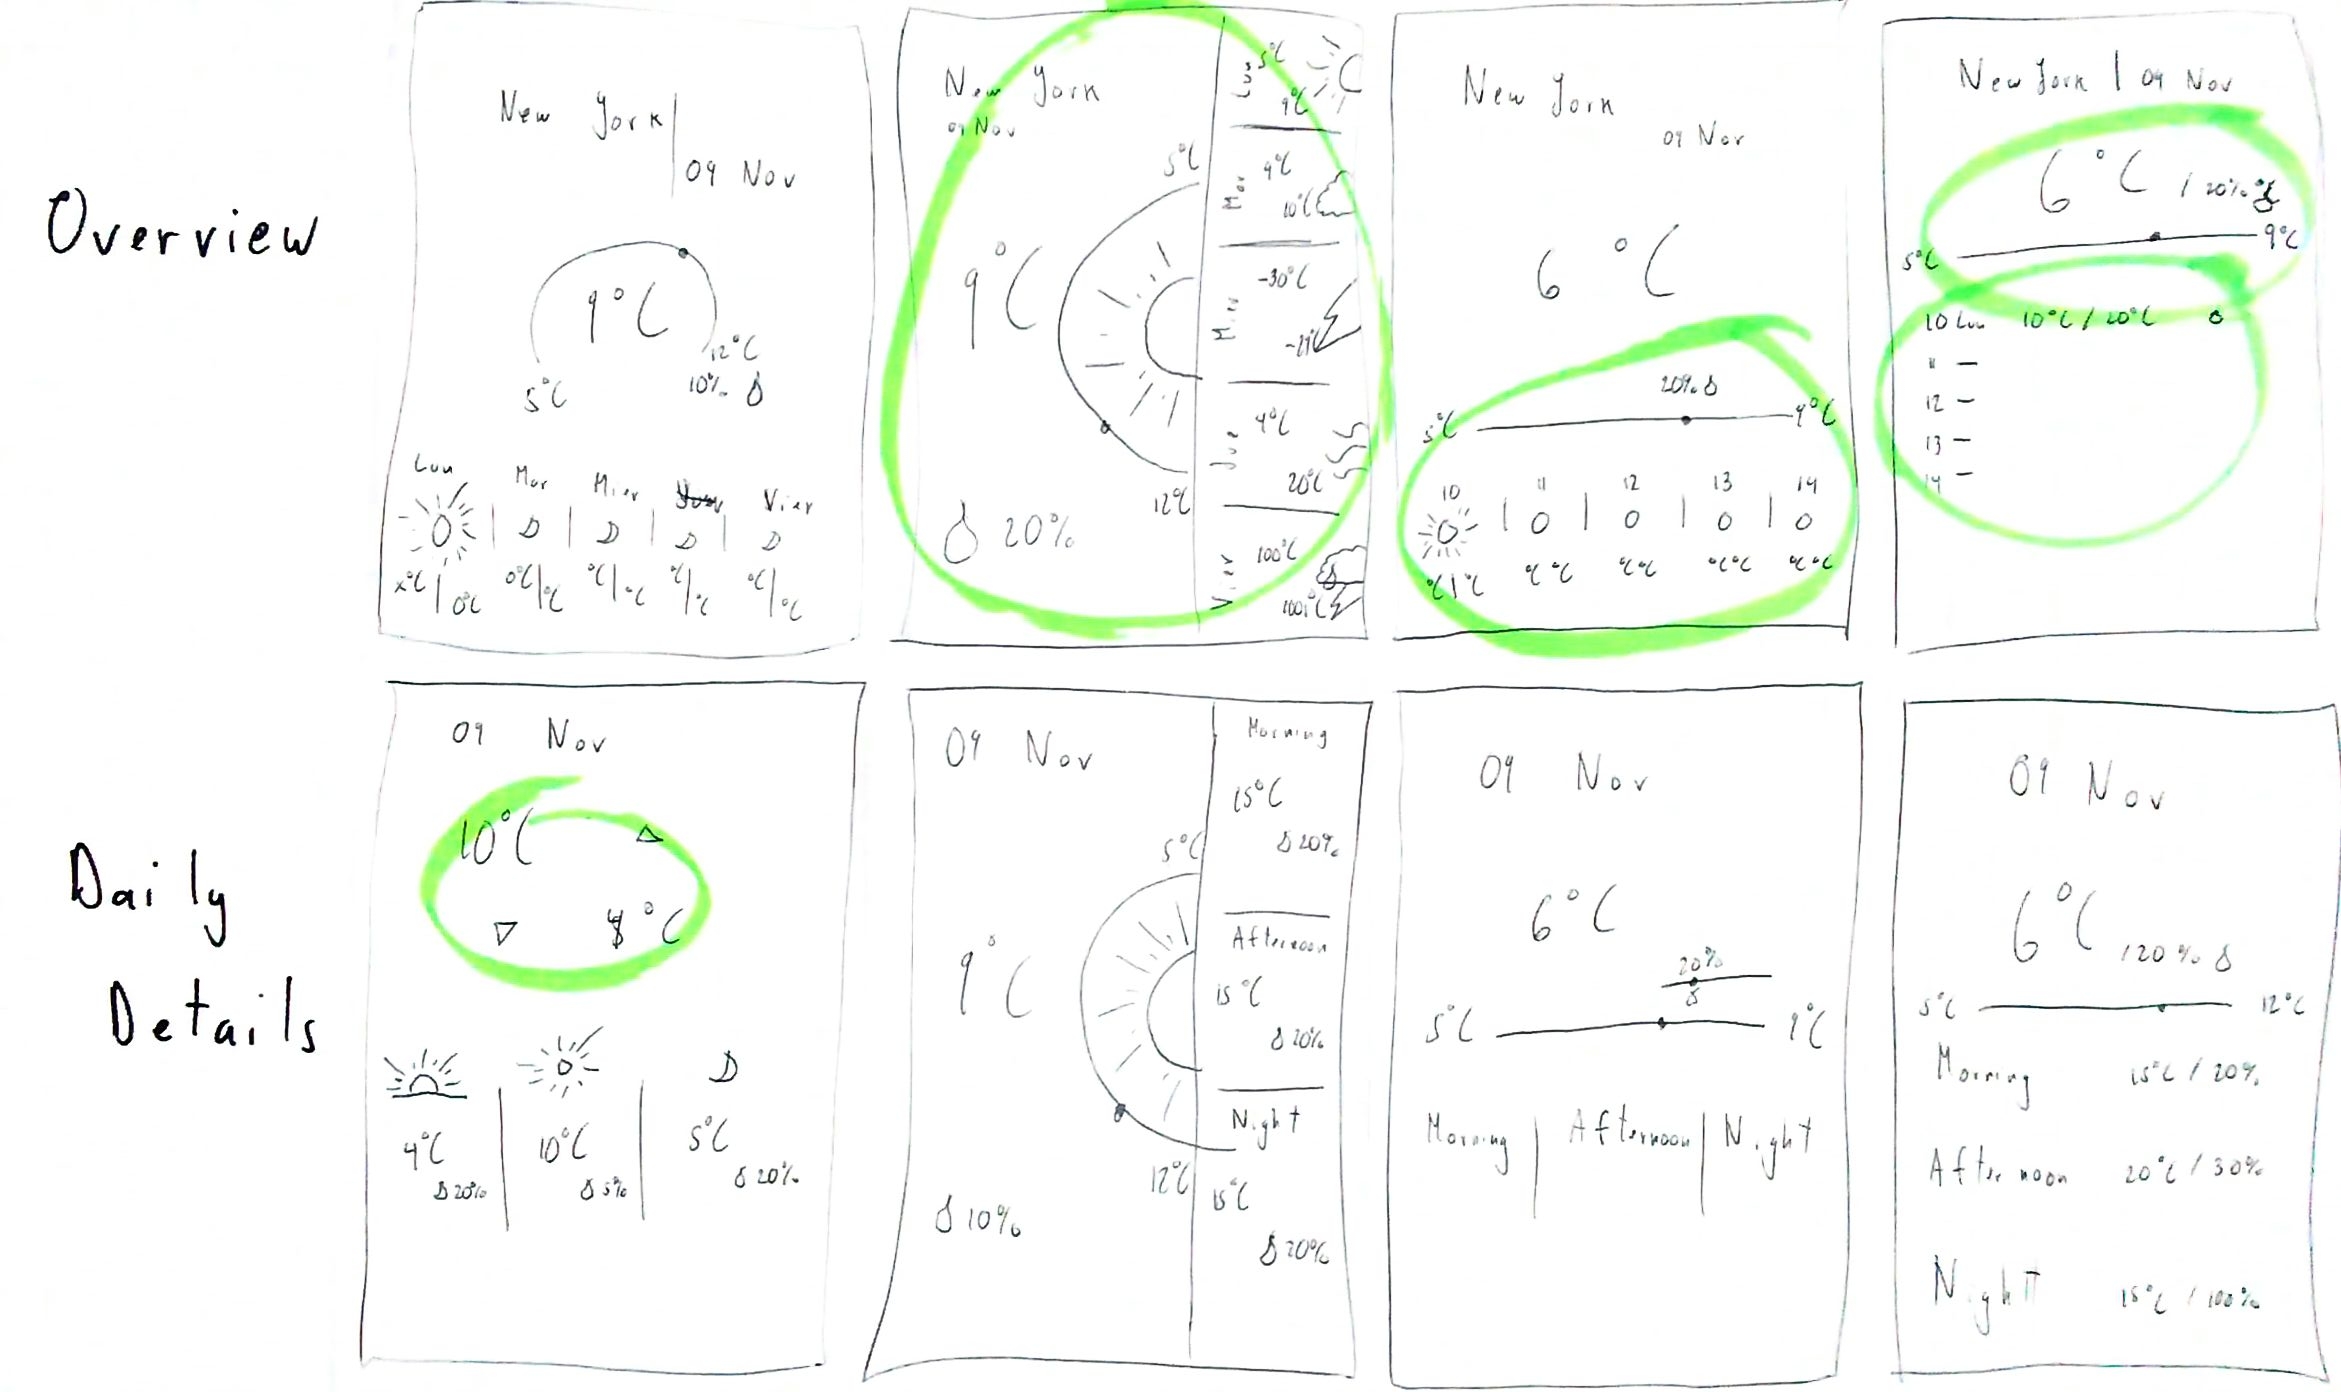 Overview
New York
09 Nov
9°C
12°C
5°C
10%
Lun
Mar
Mier
Vier
x°C
0°C
0°C/°C
°C/°C
°C/°C
°C/°C
New York
09 Nov
9°C
5°C
12°C
20%
Lun
5°C
9°C
Mar
9°C
10°C
Mier
-30°C
Jue
4°C
20°C
Vier
100°C
100°C
New York
09 Nov
6°C
20%
5°C
9°C
10 11 12 13 14
°C|°C °C °C °C °C °C °C °C °C
New York | 09 Nov
6°C / 20%
5°C
9°C
10 Lun 10°C / 20°C
11 –
12 –
13 –
14 –
Daily
Details
09 Nov
10°C
°C
4°C
20%
10°C
5%
5°C
20%
09 Nov
5°C
9°C
12°C
10%
Morning
15°C
20%
Afternoon
15°C
20%
Night
15°C
20%
09 Nov
6°C
20%
5°C
9°C
Morning | Afternoon | Night
09 Nov
6°C / 20%
5°C
12°C
Morning 15°C / 20%
Afternoon 20°C / 30%
Night 15°C / 100%